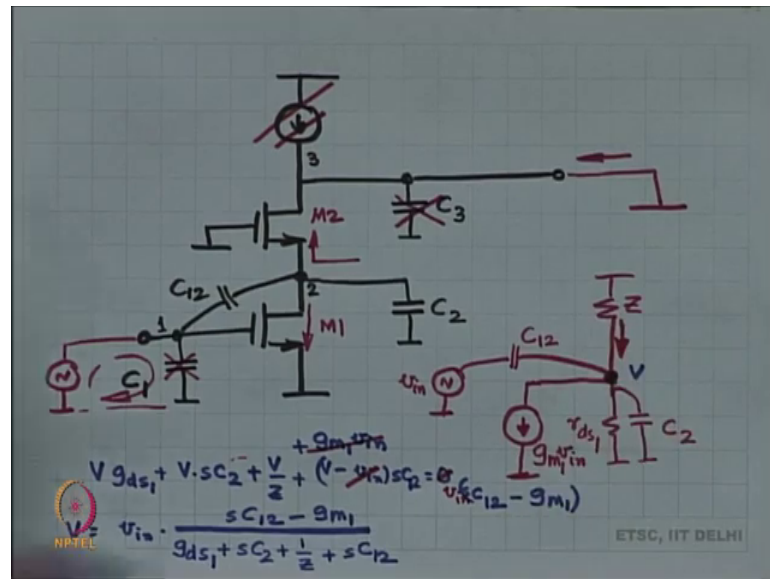 3
C3
M2
C12
2
1
M1
C2
C1
Z
C12
V
vin
rds1
C2
gm1vin
+ gm1vin
V gds1 + V·sC2 + V/Z + (V - vin)sC12 = 0 vin(sC12 - gm1)
V = vin · (sC12 - gm1) / (gds1 + sC2 + 1/Z + sC12)
NPTEL
ETSC, IIT DELHI